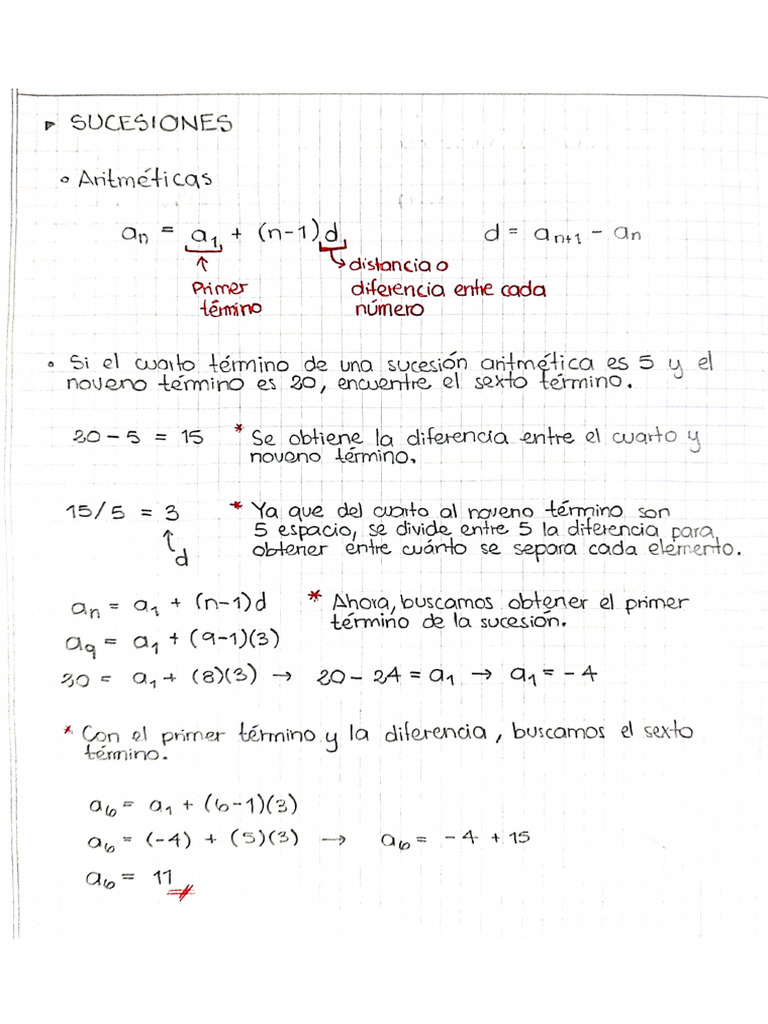 ▷ SUCESIONES
∘ Aritméticas
aₙ = a₁ + (n-1)d    d = aₙ₊₁ - aₙ
Primer término
distancia o diferencia entre cada número
∘ Si el cuarto término de una sucesión aritmética es 5 y el
noveno término es 20, encuentre el sexto término.
20 - 5 = 15  * Se obtiene la diferencia entre el cuarto y
noveno término.
15/5 = 3  * Ya que del cuarto al noveno término son
5 espacio, se divide entre 5 la diferencia para
d  obtener entre cuánto se separa cada elemento.
aₙ = a₁ + (n-1)d  * Ahora, buscamos obtener el primer
término de la sucesión.
a₉ = a₁ + (9-1)(3)
20 = a₁ + (8)(3) → 20 - 24 = a₁ → a₁ = -4
* Con el primer término y la diferencia, buscamos el sexto
término.
a₆ = a₁ + (6-1)(3)
a₆ = (-4) + (5)(3) → a₆ = -4 + 15
a₆ = 11